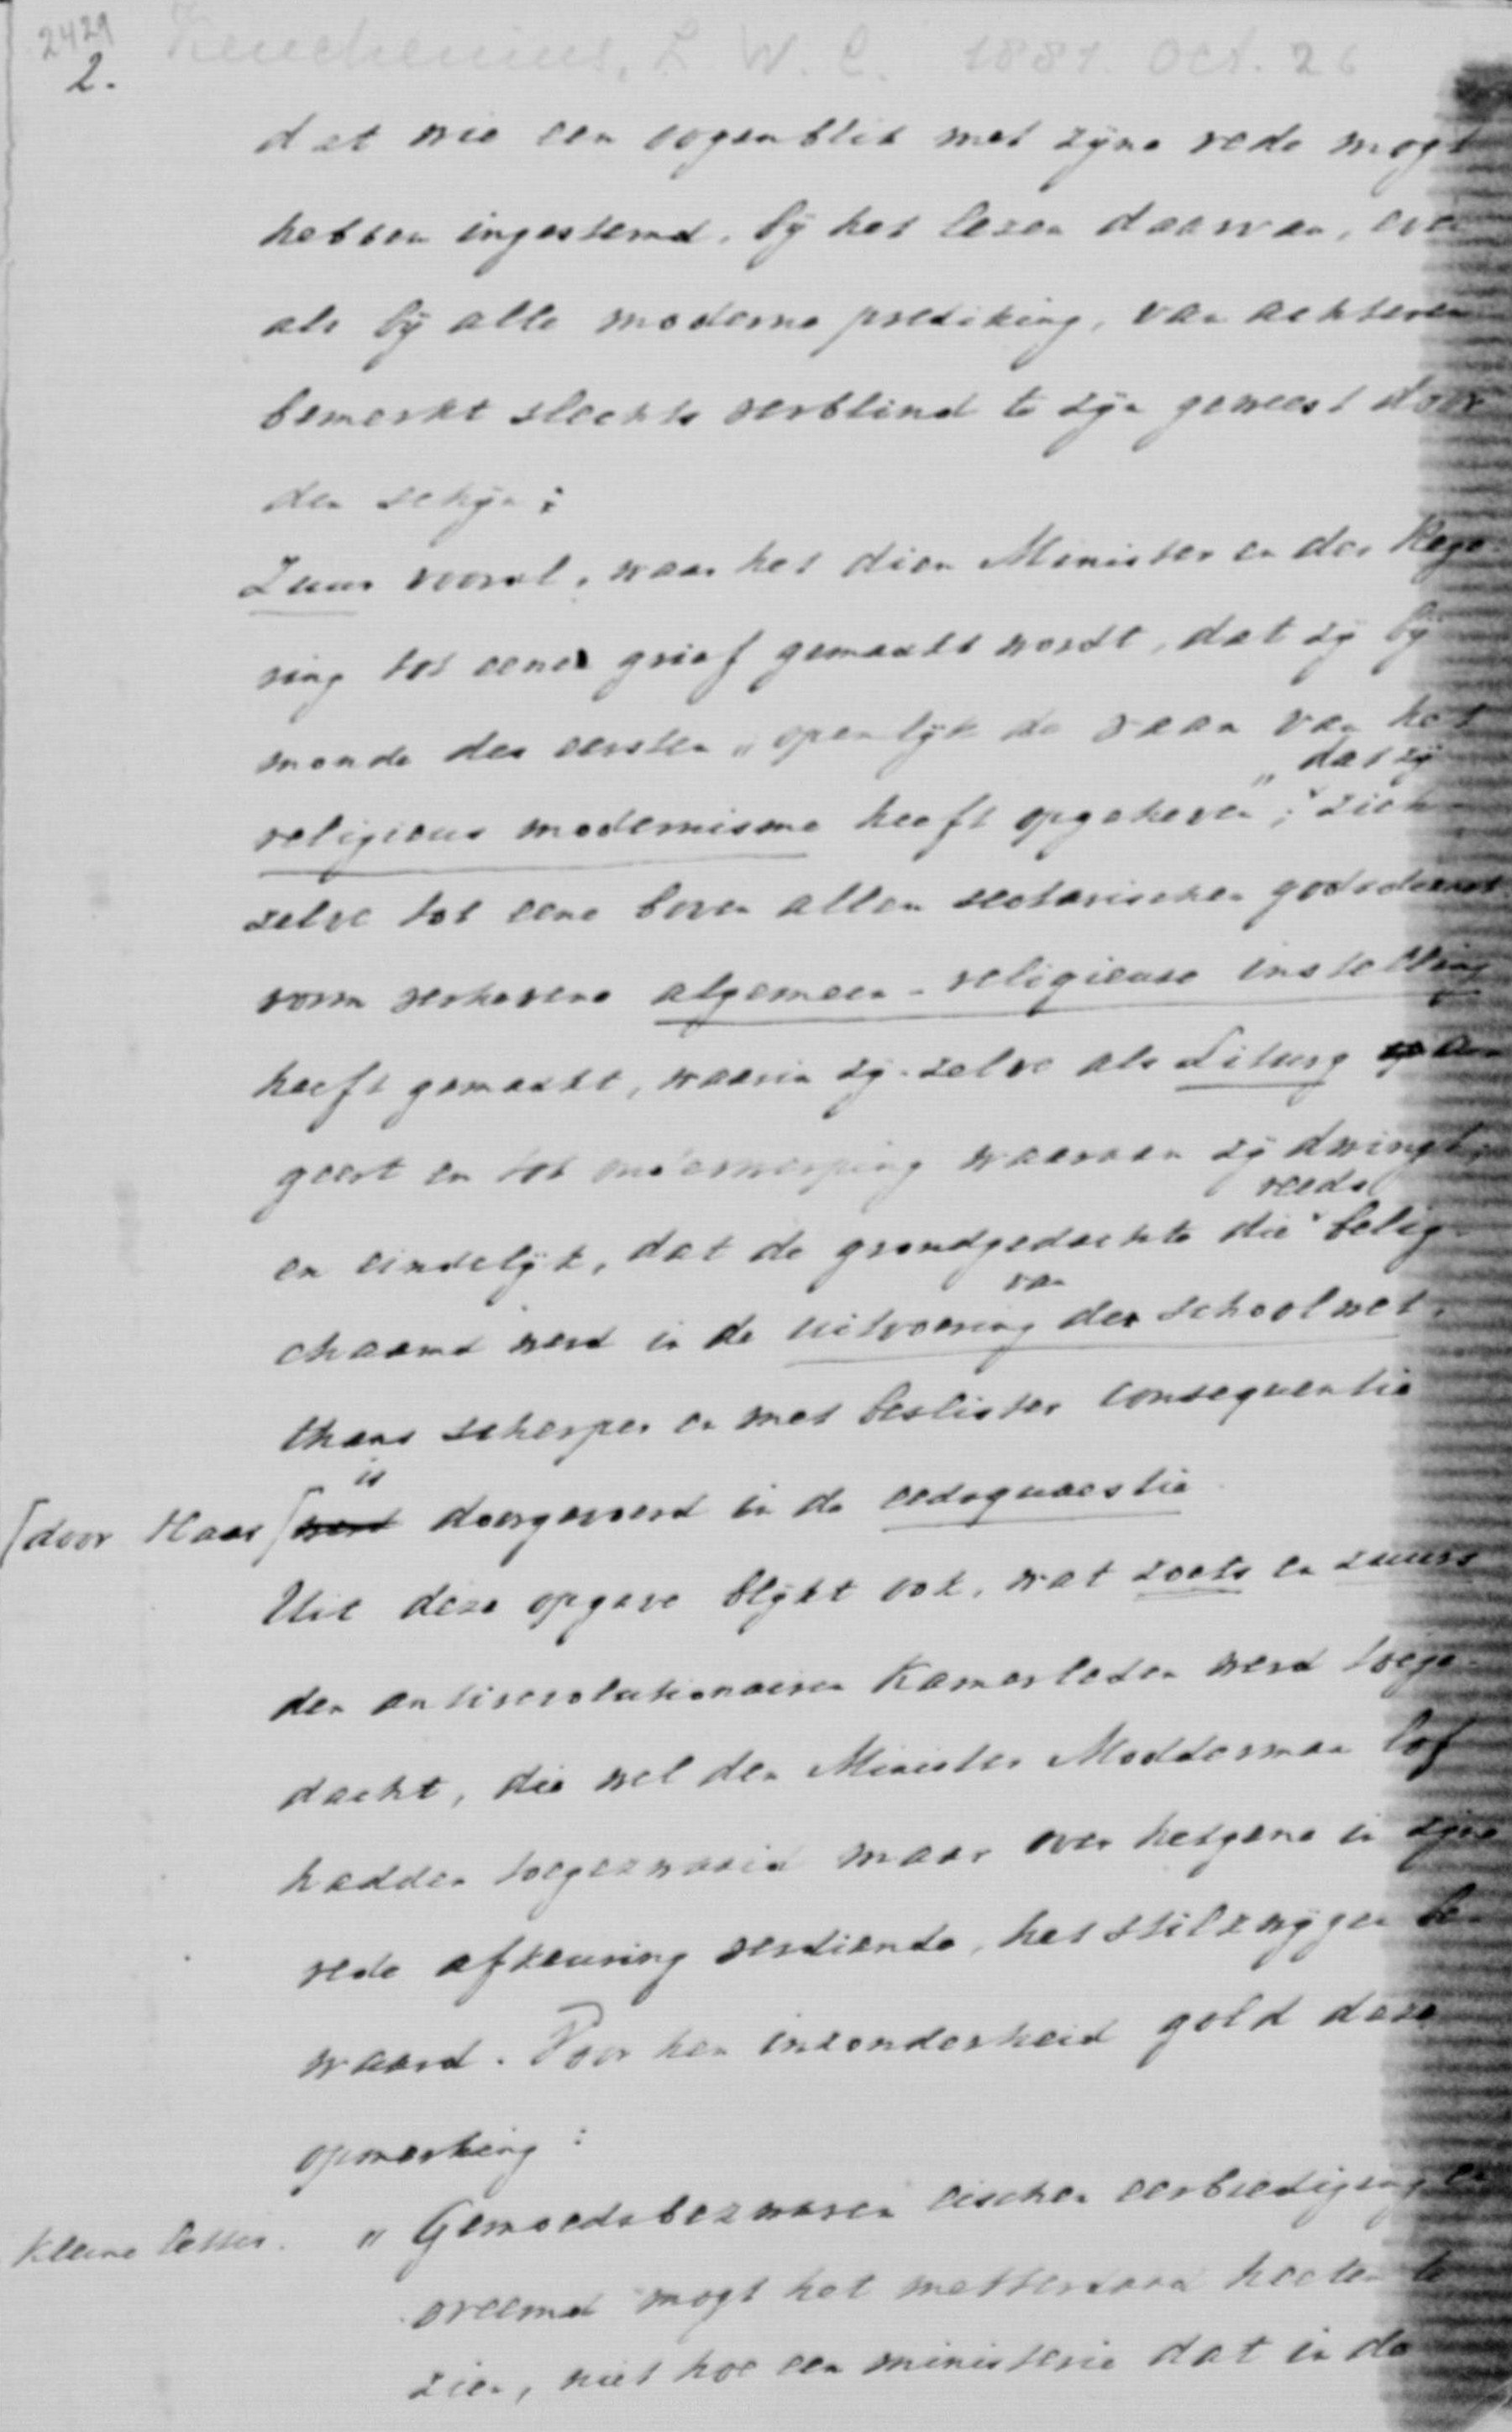 2429
Keuchenius, L. W. C. 1881. Oct. 26
2.
dat wie een oogenblik met zijne rede mogt
hebben ingestemd, bij het lezen daarvan, even
als bij alle moderne prediking, van achteren
bemerkt slechts verblind te zijn geweest door
den schijn;
Zuur vooral, waar het dien Minister en der Rege-
ring tot eene grief gemaakt wordt, dat zij bij
monde des eersten „openlijk de vaan van het
religieus modernisme heeft opgeheven"; „dat zij zich-
zelve tot eene boven allen sectarischen godsdienst
vorm verhevene algemeen-religieuse instelling
heeft gemaakt, waarin zij-zelve als Liturg
geert en tot onderwerping waaraan zij dwingt,
en eindelijk, dat de grondgedachte die reeds belig-
chaamd werd in de uitvoering van de schoolwet,
thans scherper en met beslister consequentie
[door Haar [werd is doorgevoerd in de eedsquaestie.
Uit deze opgave blijkt ook, wat zoets en zuurs
den antirevolutionairen Kamerleden werd toege-
dacht, die wel den Minister Modderman lof
hadden toegezwaaid maar over hetgene in zijne
rede afkeuring verdiende, het stilzwijgen be-
waard. Voor hen inzonderheid gold deze
opmerking:
kleine letter. „Gemoedsbezwaren eischen eerbiediging en
vreemd mogt het metterdaad heeten te
zien, niet hoe een ministerie dat in de